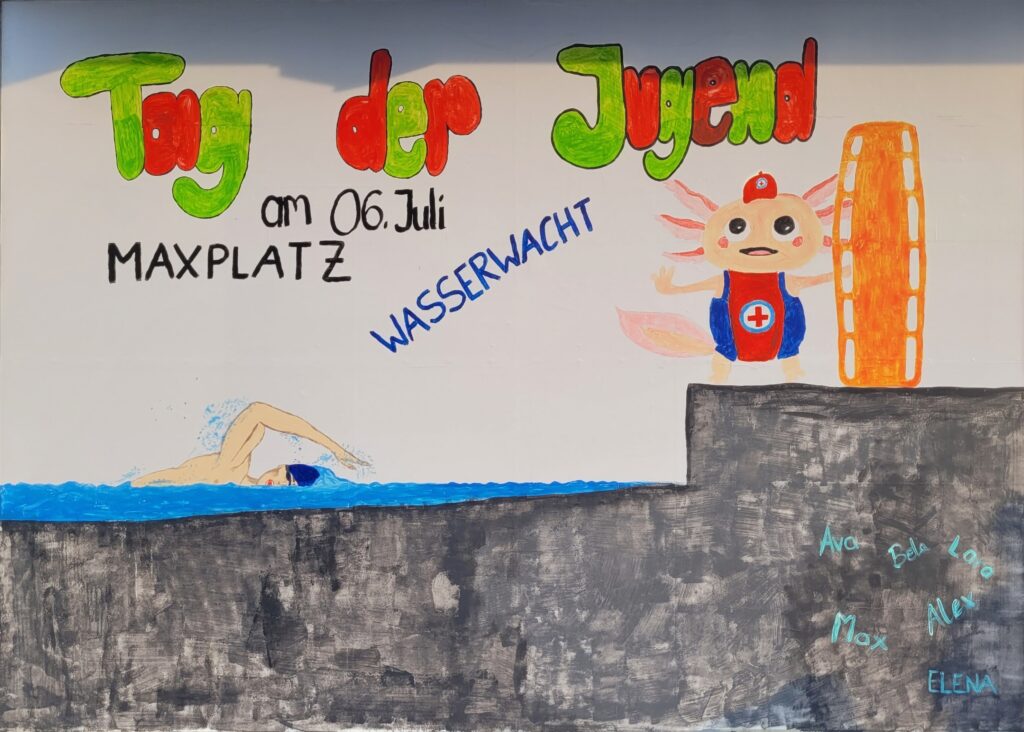 Tag der Jugend
am 06. Juli
MAXPLATZ
WASSERWACHT
Ava Bela Lara
Max Alex
ELENA